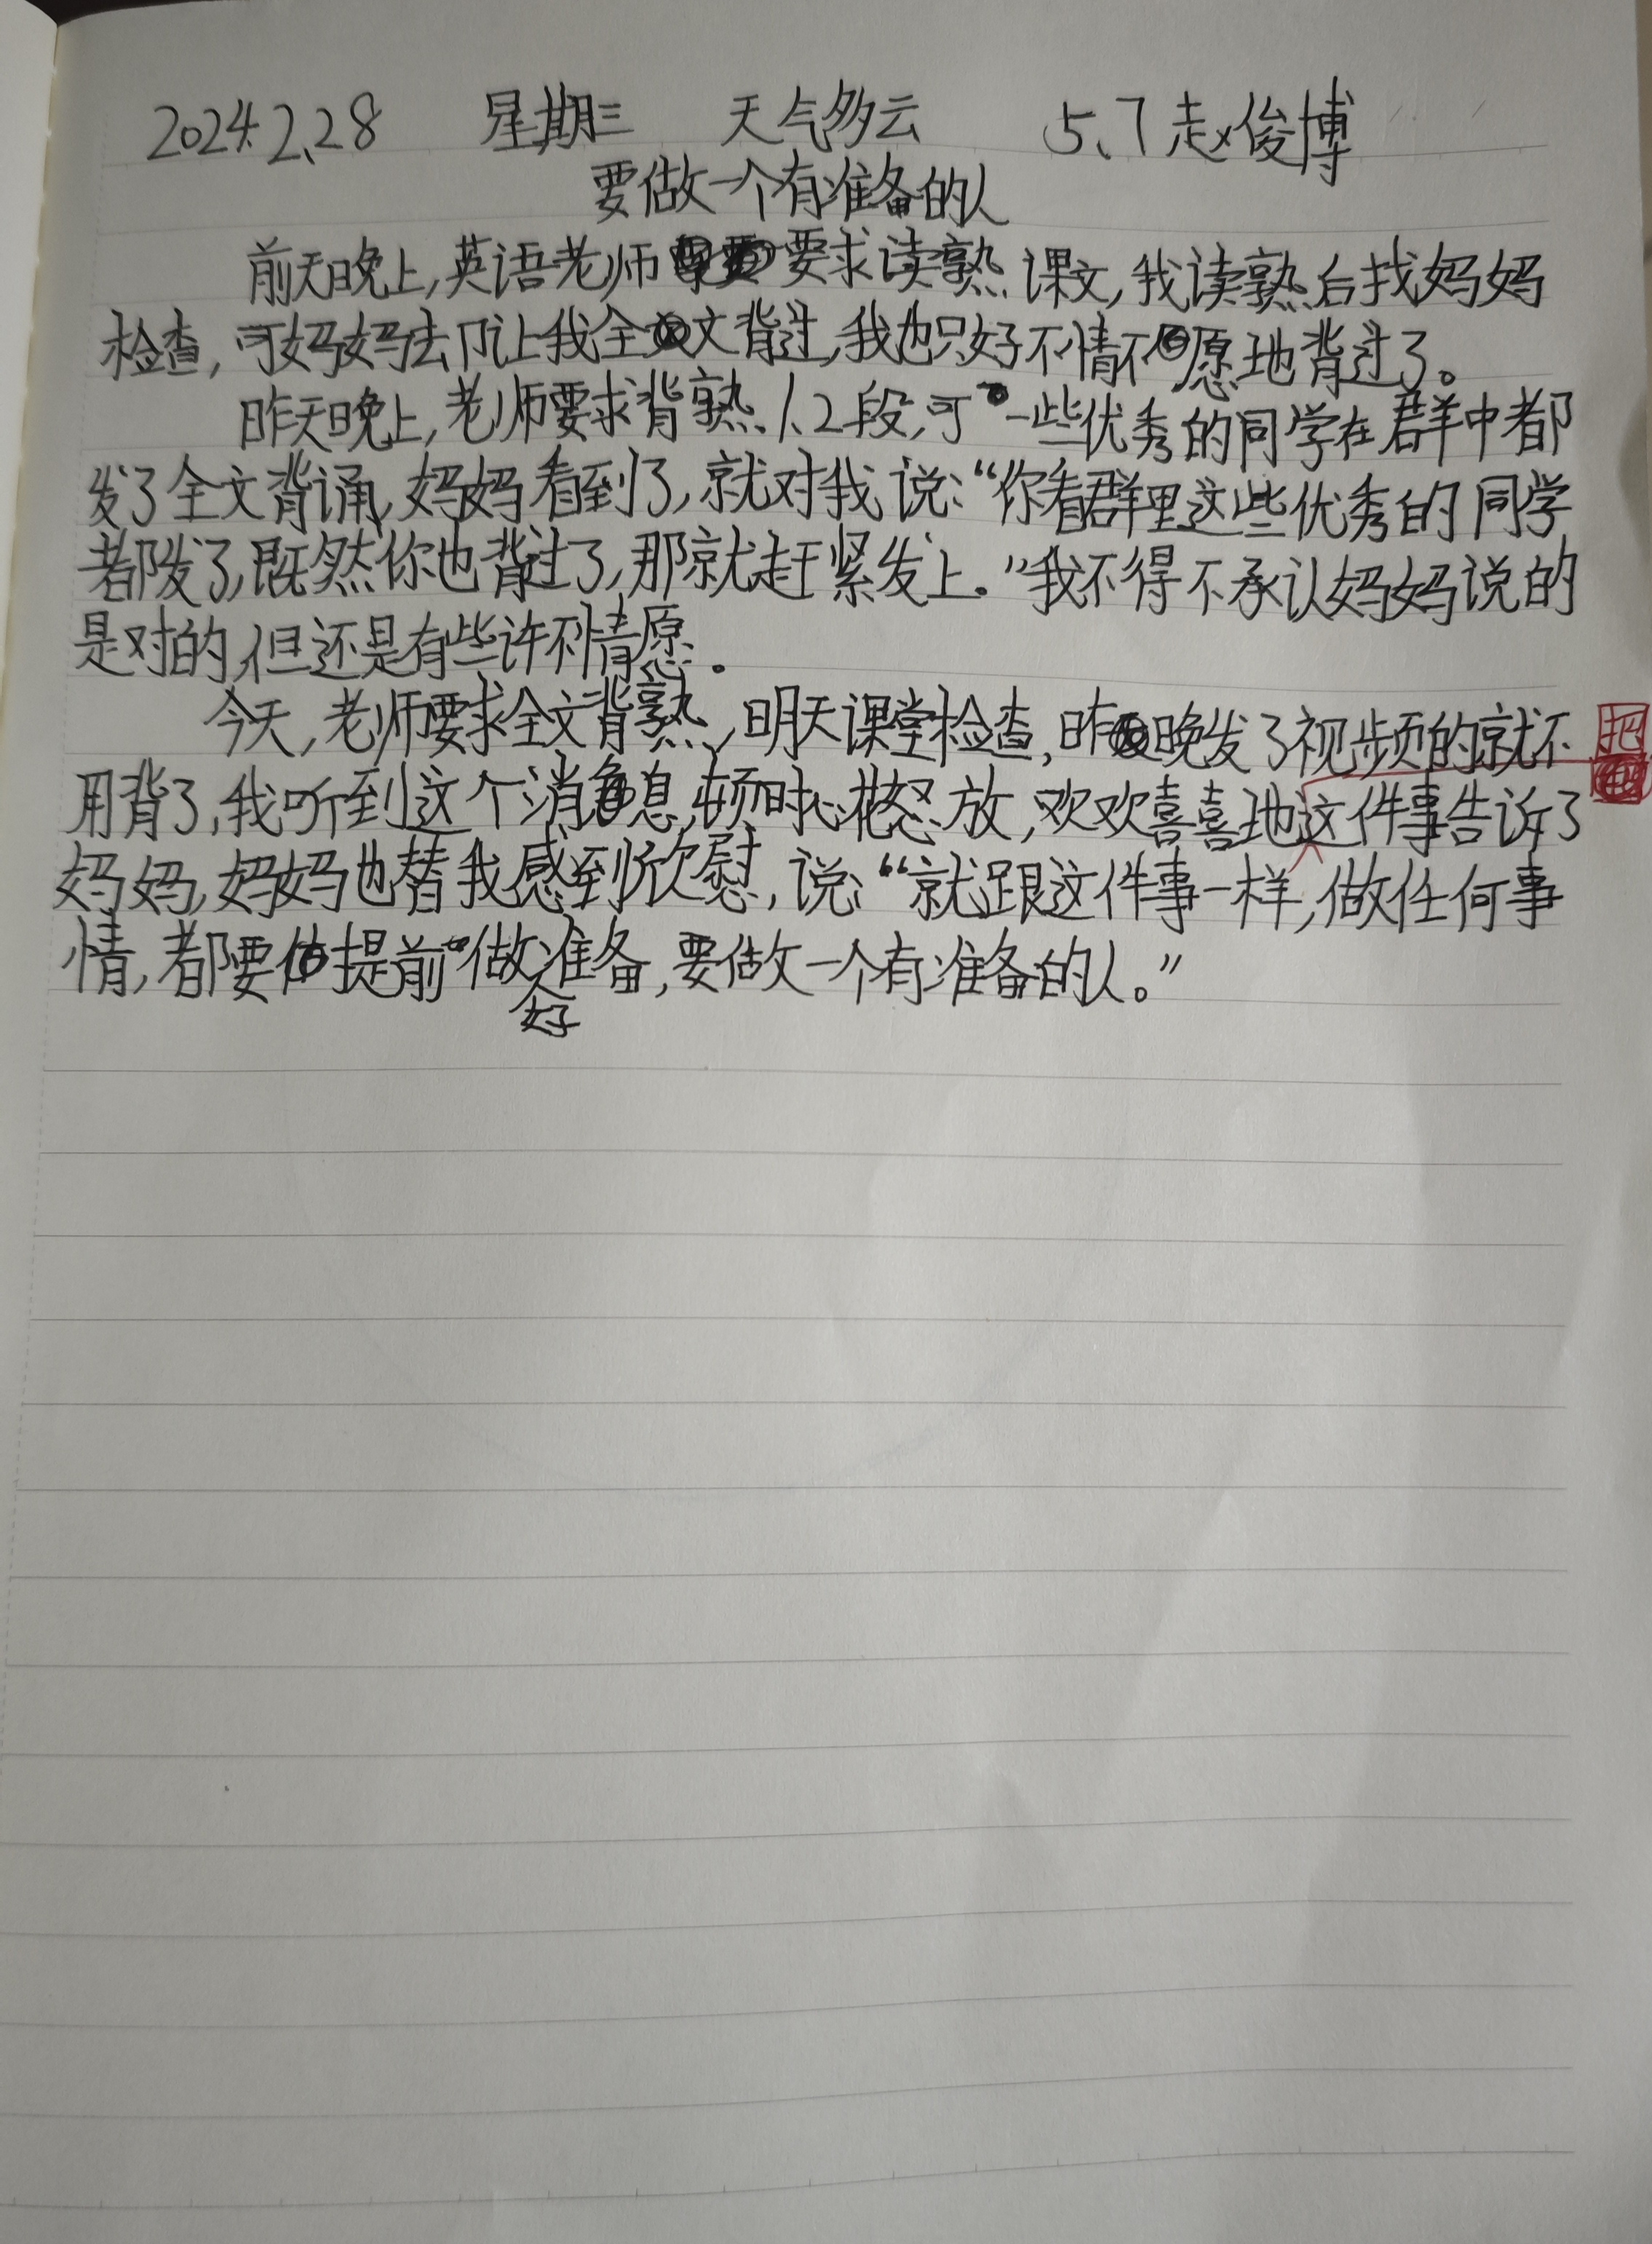 2024.2.28 星期三 天气多云 5.7赵俊博
要做一个有准备的人
前天晚上,英语老师要求读熟课文,我读熟后找妈妈
检查,可妈妈去门让我全文背过,我也只好不情不愿地背过了。
昨天晚上,老师要求背熟1、2段,可一些优秀的同学在群中都
发了全文背诵,妈妈看到了,就对我说:“你看群里这些优秀的同学
都发了,既然你也背过了,那就赶紧发上。”我不得不承认妈妈说的
是对的,但还是有些许不情愿。
今天,老师要求全文背熟,明天课堂检查,昨晚发了视频的就不
用背了,我听到这个消息,顿时心花怒放,欢欢喜喜地把这件事告诉了
妈妈,妈妈也替我感到欣慰,说:“就跟这件事一样,做任何事
情,都要提前做好准备,要做一个有准备的人。”